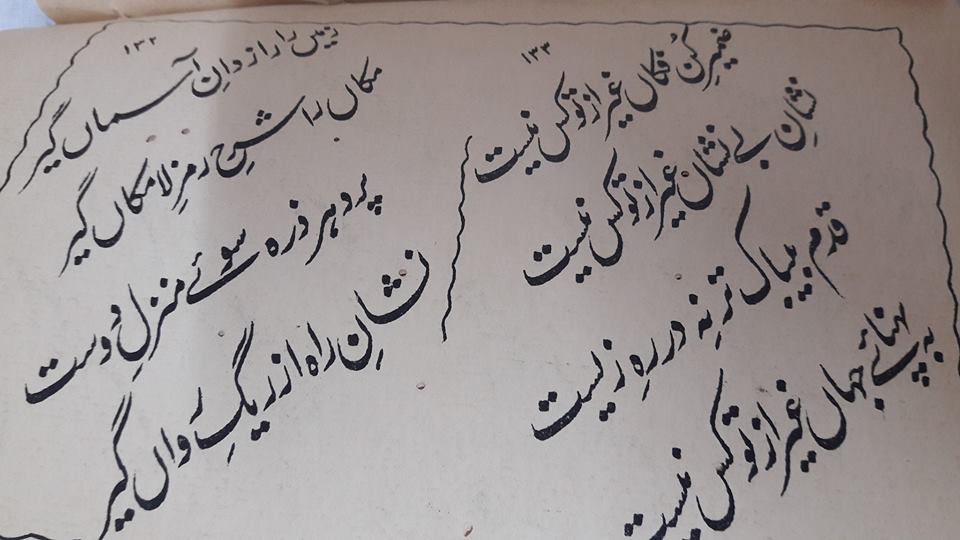 ۱۳۲
زمیں را رازدانِ آسماں گیر
مکاں را شرحِ رمزِ لامکاں گیر
پرد ہر ذرہ سوئے منزلِ دوست
نشانِ راہ از ریگِ رواں گیر
۱۳۳
ضمیرِ کُن فکاں غیر از تو کس نیست
نشانِ بے نشاں غیر از تو کس نیست
قدم بیباک تر نِہ در رہِ زیست
بہ پہنائے جہاں غیر از تو کس نیست